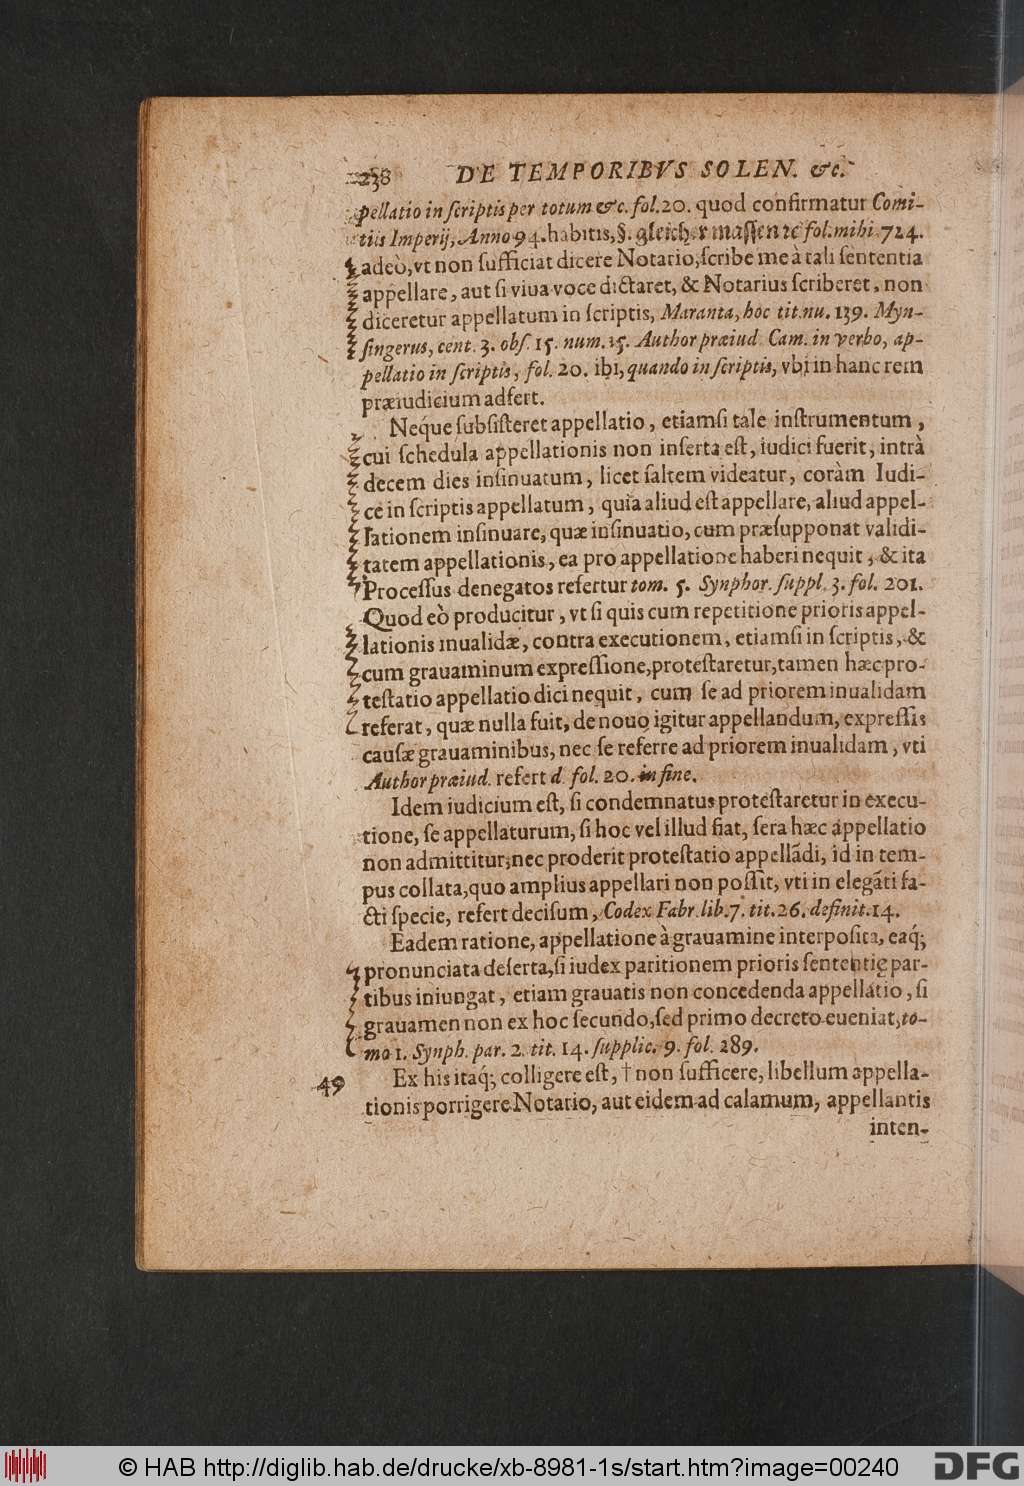 238 DE TEMPORIBVS SOLEN. &c.
pellatio in ſcriptis per totum &c. fol. 20. quod confirmatur Comi-
tiis Imperij, Anno 94. habitis, §. gleicher maſſen ꝛc fol. mihi 724.
adeò, vt non ſufficiat dicere Notario, ſcribe me à tali ſententia
appellare, aut ſi viua voce dictaret, & Notarius ſcriberet, non
diceretur appellatum in ſcriptis, Maranta, hoc tit. nu. 139. Myn-
ſingerus, cent. 3. obſ. 15. num. 15. Author præiud. Cam. in verbo, ap-
pellatio in ſcriptis, fol. 20. ibi, quando in ſcriptis, vbi in hanc rem
præiudicium adfert.
Neque ſubſiſteret appellatio, etiamſi tale inſtrumentum,
cui ſchedula appellationis non inſerta eſt, iudici fuerit, intrà
decem dies inſinuatum, licet ſaltem videatur, coràm Iudi-
ce in ſcriptis appellatum, quia aliud eſt appellare, aliud appel-
lationem inſinuare, quæ inſinuatio, cum præſupponat validi-
tatem appellationis, ea pro appellatione haberi nequit, & ita
Proceſſus denegatos refertur tom. 5. Synphor. ſuppl. 3. fol. 201.
Quod eò producitur, vt ſi quis cum repetitione prioris appel-
lationis inualidæ, contra executionem, etiamſi in ſcriptis, &
cum grauaminum expreſſione, proteſtaretur, tamen hæc pro-
teſtatio appellatio dici nequit, cum ſe ad priorem inualidam
referat, quæ nulla fuit, de nouo igitur appellandum, expreſſis
cauſæ grauaminibus, nec ſe referre ad priorem inualidam, vti
Author præiud. refert d. fol. 20. in fine.
Idem iudicium eſt, ſi condemnatus proteſtaretur in execu-
tione, ſe appellaturum, ſi hoc vel illud fiat, ſera hæc appellatio
non admittitur; nec proderit proteſtatio appellãdi, id in tem-
pus collata, quo amplius appellari non poſſit, vti in elegãti fa-
cti ſpecie, refert deciſum, Codex Fabr. lib. 7. tit. 26. definit. 14.
Eadem ratione, appellatione à grauamine interpoſita, eaq́;
pronunciata deſerta, ſi iudex paritionem prioris ſententię par-
tibus iniungat, etiam grauatis non concedenda appellatio, ſi
grauamen non ex hoc ſecundo, ſed primo decreto eueniat, to-
mo 1. Synph. par. 2. tit. 14. ſupplic. 9. fol. 289.
49 Ex his itaq́; colligere eſt, † non ſufficere, libellum appella-
tionis porrigere Notario, aut eidem ad calamum, appellantis
inten-
© HAB http://diglib.hab.de/drucke/xb-8981-1s/start.htm?image=00240
DFG